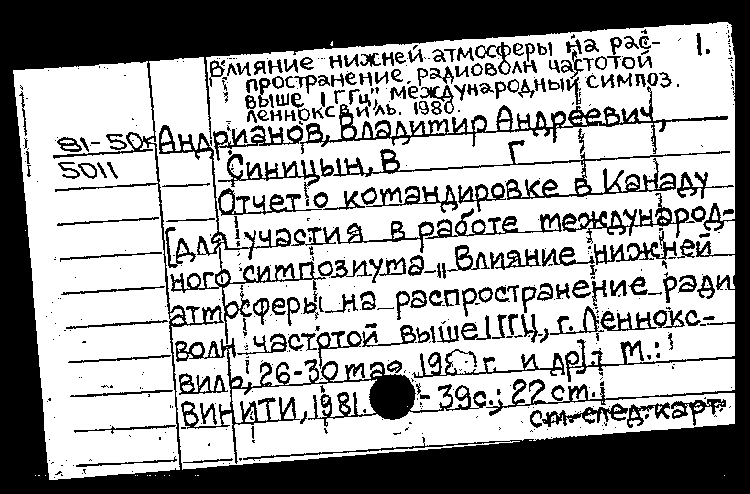 Влияние нижней атмосферы на рас- 1.
пространение радиоволн частотой
выше 1 ГГц", международный симпоз.
Ленноксвиль. 1980.
81-50к Андрианов, Владимир Андреевич,
5011 Синицын, В Г
Отчет о командировке в Канаду
[для участия в работе международ-
ного симпозиума „Влияние нижней
атмосферы на распространение ради
волн частотой выше 1 ГГЦ, г. Леннокс-
виль, 26-30 мая 1980 г. и др]- М.:
ВИНИТИ, 1981. - 39с.; 22 см.
см. след. карт